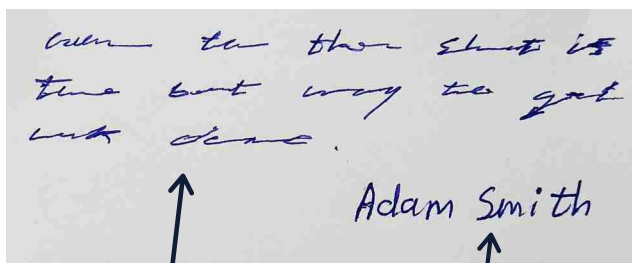 then short is
time best way to get
work done.
Adam Smith